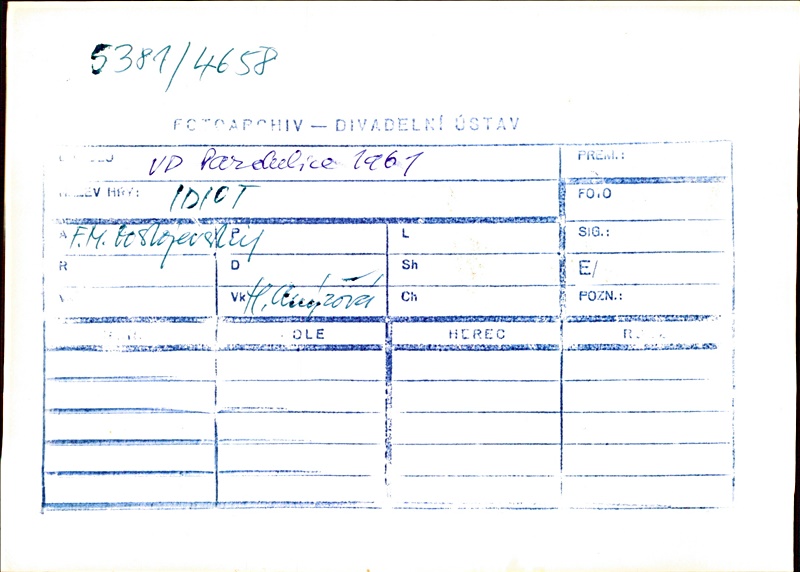 5381/4658
FOTOARCHIV — DIVADELNÍ ÚSTAV
DIVADLO VD Pardubice 1961 PREM.:
NÁZEV HRY: IDIOT FOTO
A F.M. Dostojevskij P L SIG.:
R D Sh E/
V Vk H. Ch POZN.:
ROLE HEREC